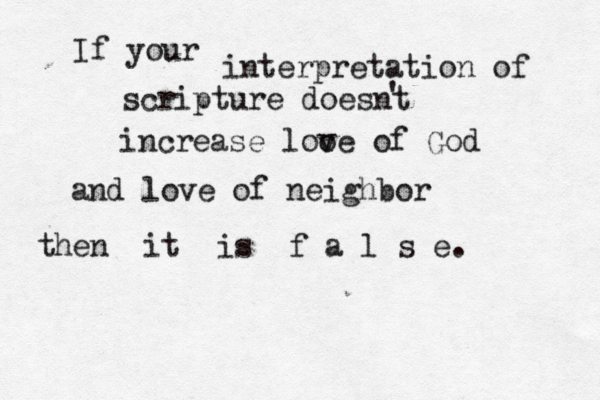 If your interpretation of
scripture doesn't
increase love of God
and love of neighbor
then it is f a l s e.